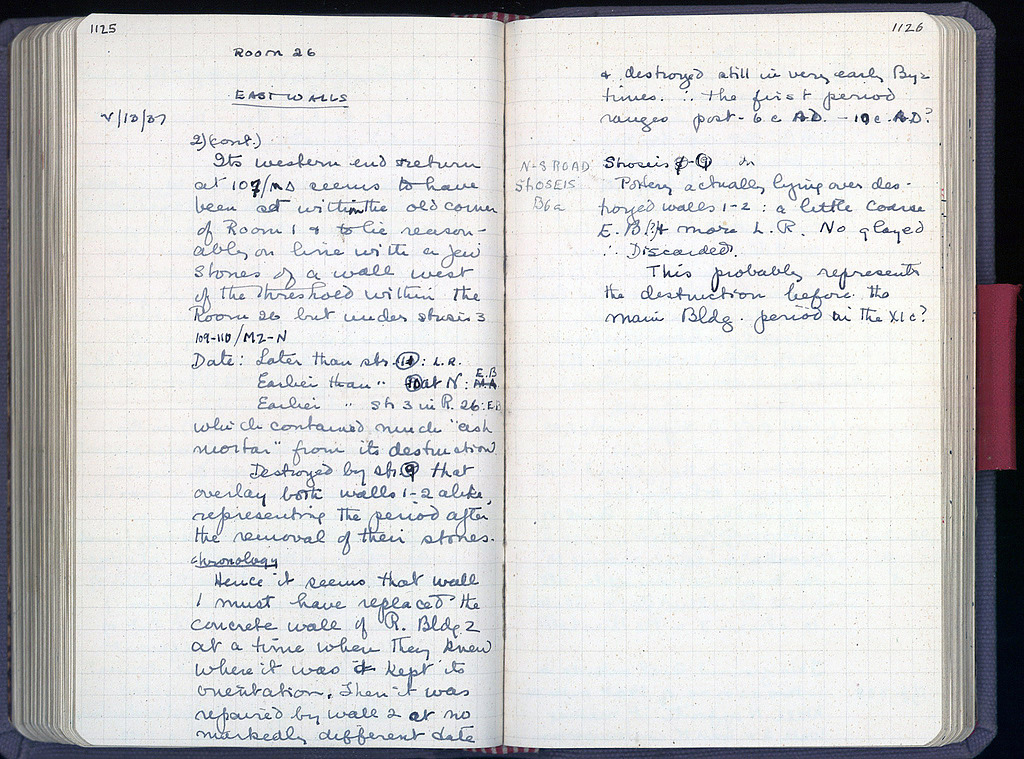 1125
Room 26
EAST WALLS
V/13/37
2) (cont.)
Its western end return
at 107/ND seems to have
been set within the old corner
of Room 1 & to lie reason-
ably on line with a few
stones of a wall west
of the threshold within the
Room 26 but under strosis 3
109-110/MZ-N
Date: Later than str. 11: L.R.
Earlier than " 10 at N: E.B
Earlier " str 3 in R. 26: E.B
which contained much "ash
mortar" from its destruction
Destroyed by str. 9 that
overlay both walls 1-2 alike,
representing the period after
the removal of their stones.
Chronology
Hence it seems that wall
1 must have replaced the
concrete wall of R. Bldg. 2
at a time when they knew
where it was & kept its
orientation. Then it was
repaired by wall 2 at no
markedly different date
1126
& destroyed still in very early Byz
times. ∴ The first period
ranges post-6 c AD. – 10 c. A.D.?
N-S ROAD
STROSEIS
B6a
Stroseis 9
Pottery actually lying over des-
troyed walls 1-2: a little coarse
E. B. & more L. R. No glazed
∴ Discarded.
This probably represents
the destruction before the
main Bldg. period in the XI c?